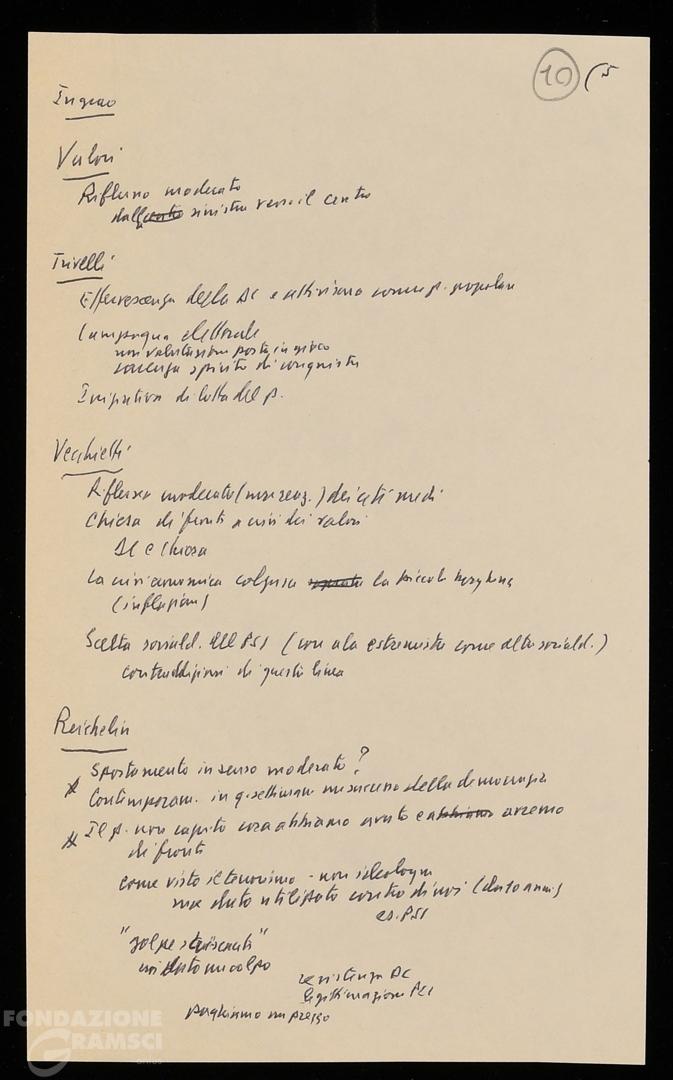 10 (5
Ingrao
Valori
Riflusso moderato
dalla sinistra verso il centro
Trivelli
Effervescenza della DC e attivismo come p. popolare
Campagna elettorale
non valutazione posta in gioco
spirito di conquista
Iniziativa di lotta del p.
Vecchietti
Riflusso moderato ( ) dei ceti medi
Chiesa di fronte a crisi dei valori
DC e Chiesa
La crisi economica colpisce la piccola borghesia
(inflazione)
Scelta sociald. del PSI (con ala estremista come altre sociald.)
contraddizioni di questa linea
Reichlin
Spostamento in senso moderato?
Contemporan. in q. settimane della democrazia
Il p. non capito cosa abbiamo avuto e avremo
di fronte
come visto il terrorismo - non ideologia
ma dato utilizzato contro di noi (dato annis)
es. PSI
"golpe strisciante"
noi dato un colpo
resistenza DC
legittimazione PCI
paghiamo un prezzo
FONDAZIONE
GRAMSCI
ONLUS